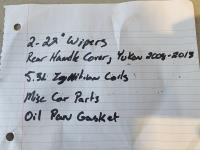 2-22" Wipers
Rear Handle Cover, Yukon 2008-2013
5.3L Ignition Coils
Misc Car Parts
Oil Pan Gasket